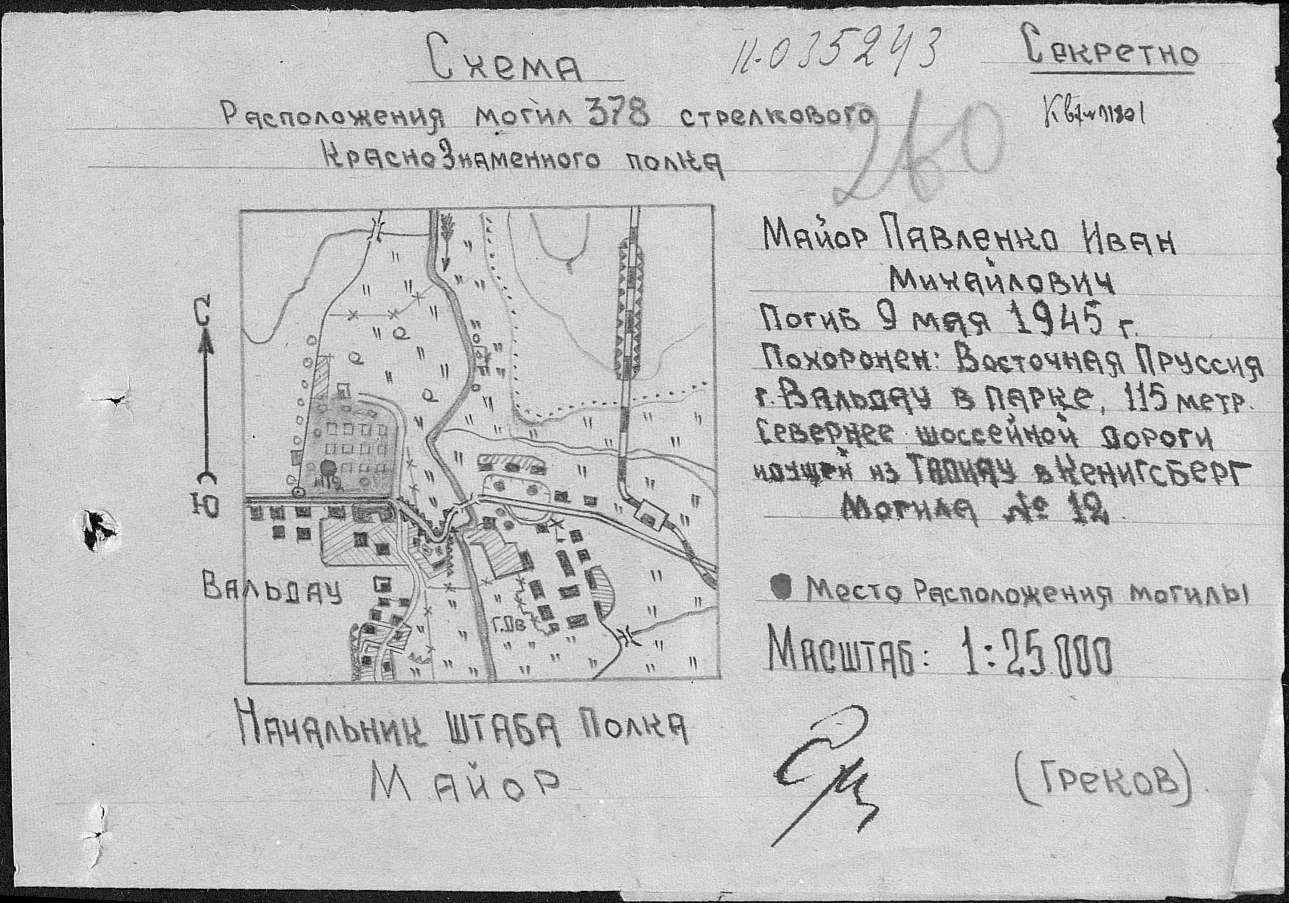 Схема
п-035243
Секретно
Расположения могил 378 стрелкового
Краснознаменного полка
260
Майор Павленко Иван
Михайлович
Погиб 9 мая 1945 г.
Похоронен: Восточная Пруссия
г. Вальдау в парке, 115 метр.
Севернее шоссейной дороги
идущей из Тапиау в Кенигсберг
Могила № 12.
С
Ю
№12
Вальдау
Г.Дв
Место Расположения могилы
Масштаб: 1:25.000
Начальник штаба полка
Майор
(Греков).